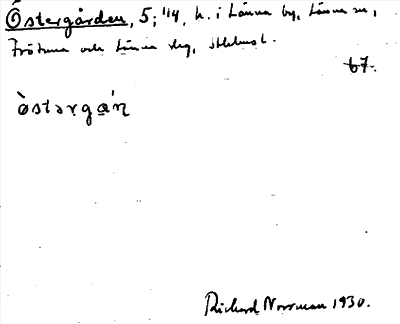 Östergården, 5; 1/4, h. i Länna by, Länna sn,
Frötuna och Länna skg, Sthlms l.
67.
òstərga̲'ɳ
Richard Norrman 1930.